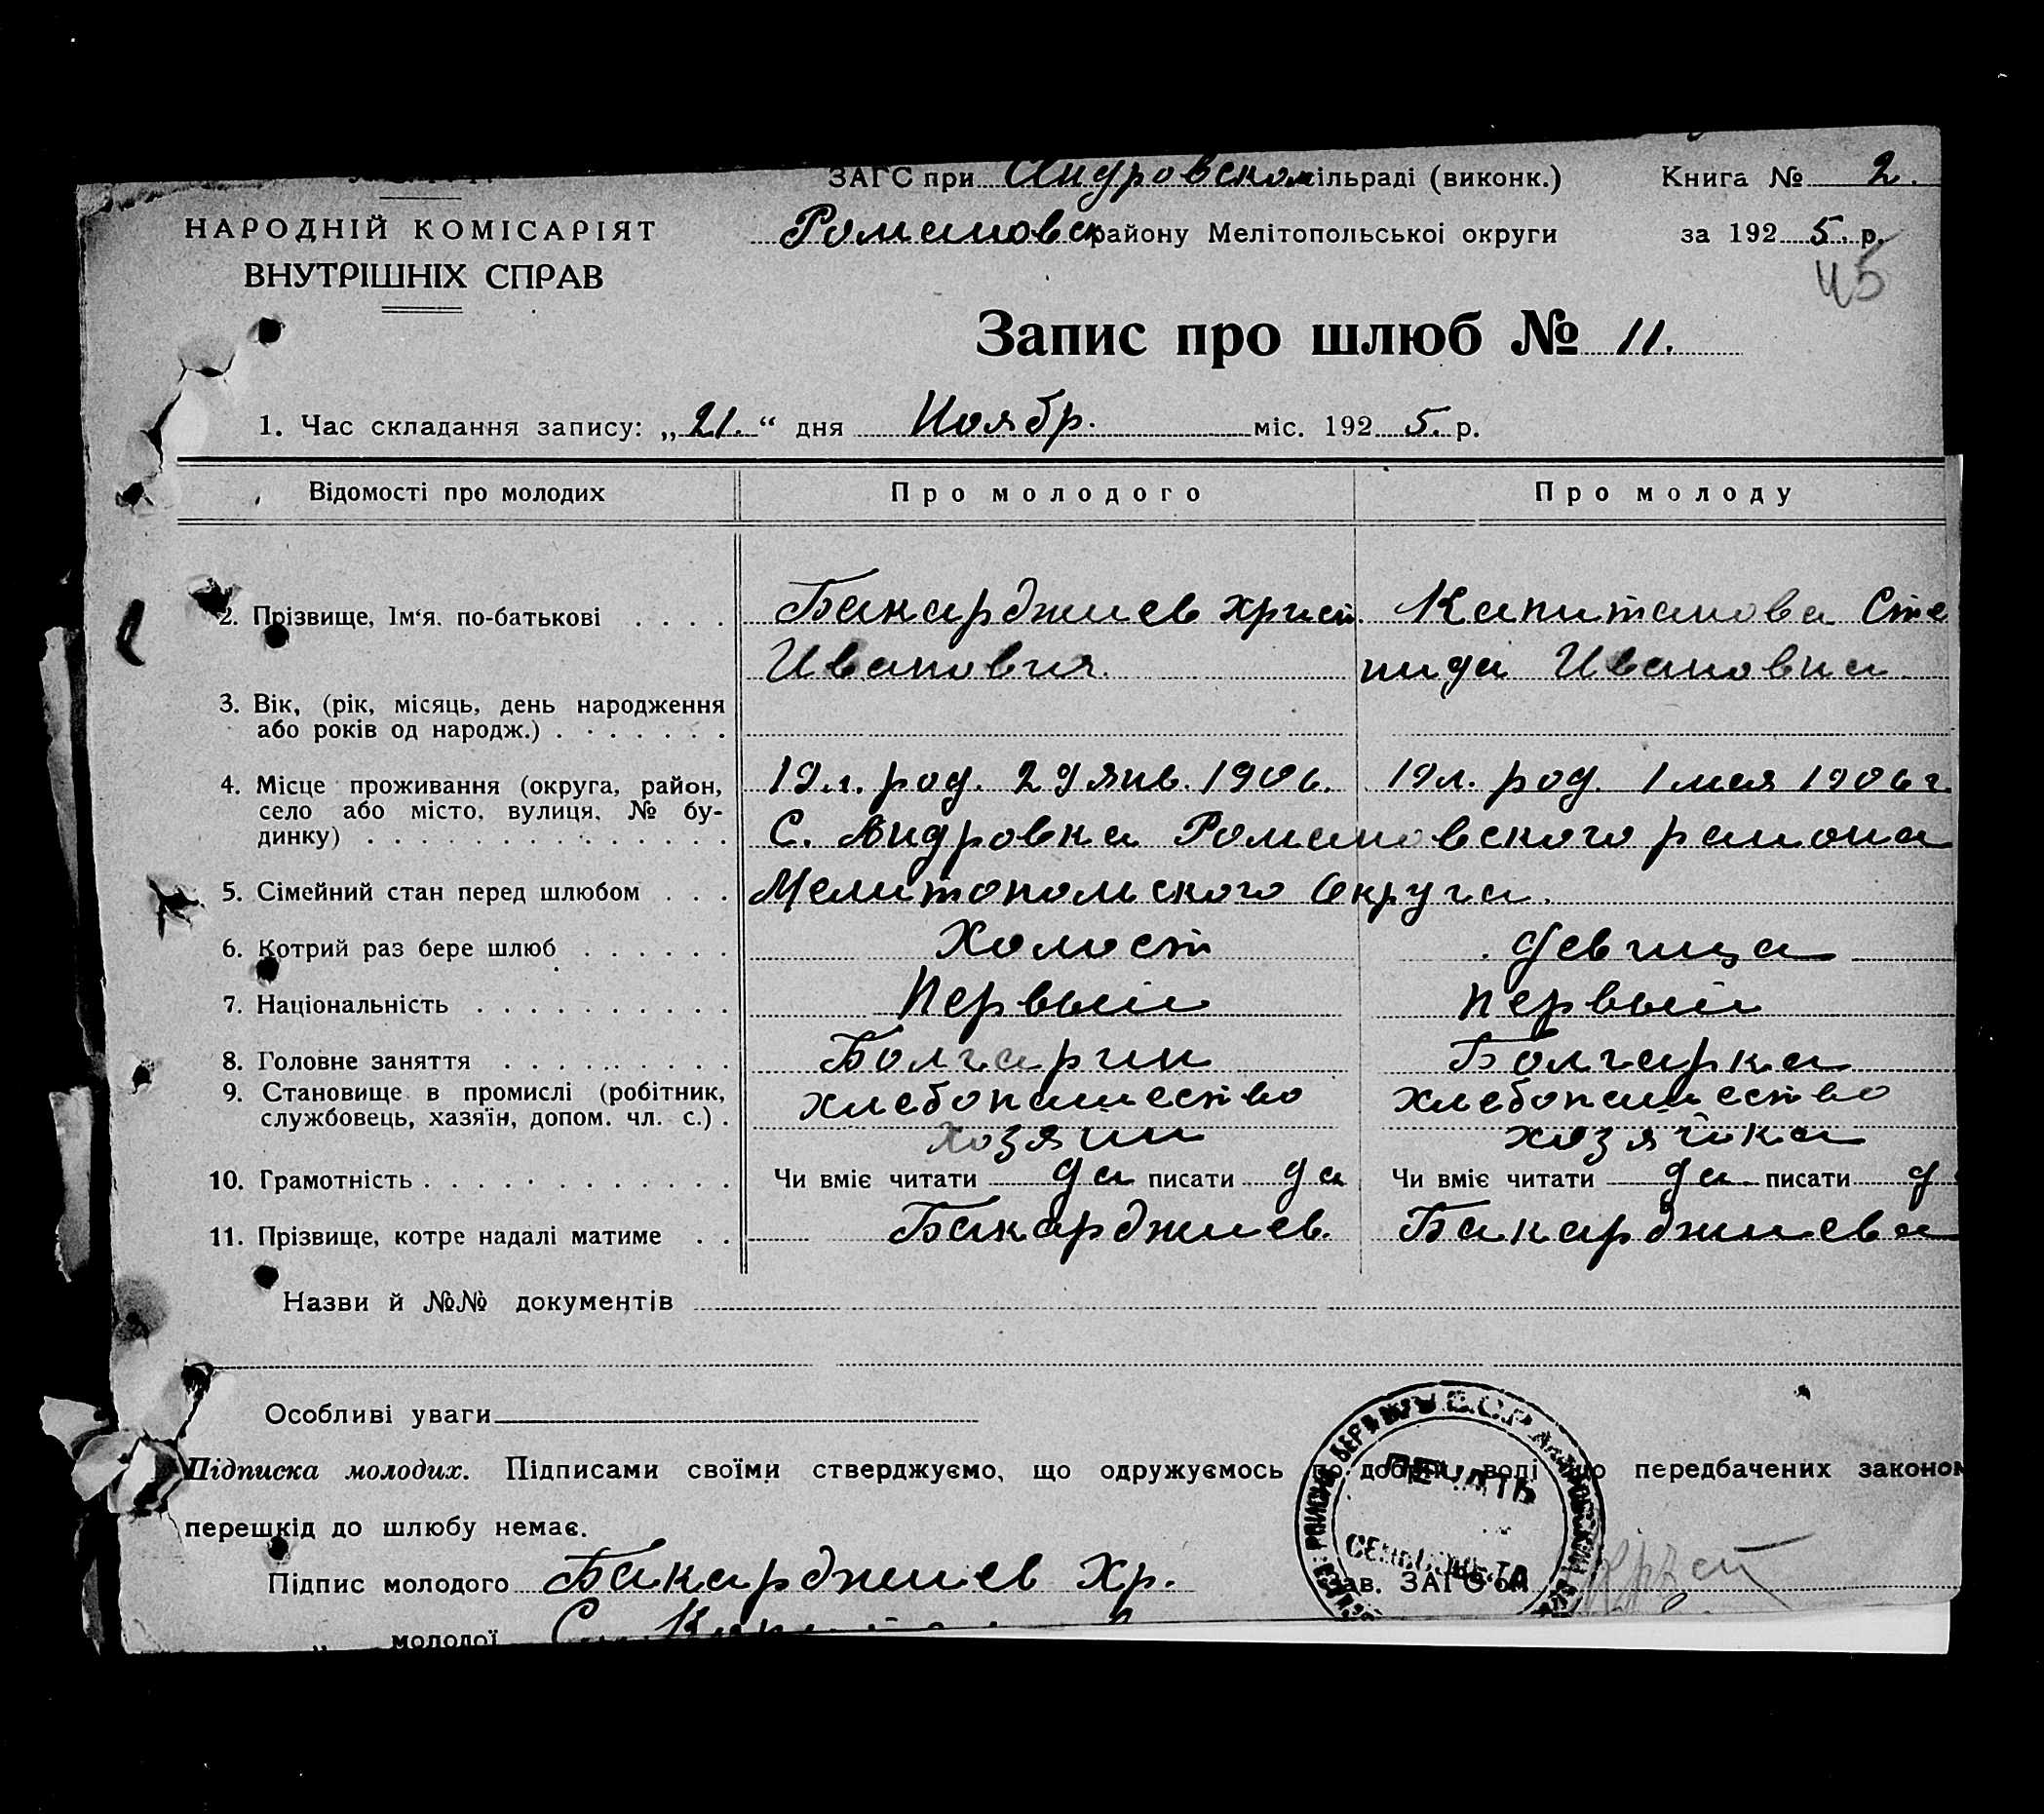 ЗАГС при Андровском сільраді (виконк.) Книга № 2.
НАРОДНІЙ КОМІСАРІЯТ Романовск району Мелітопольської округи за 1925. р.
ВНУТРІШНІХ СПРАВ 45
Запис про шлюб № 11.
1. Час складання запису: „21.“ дня Ноябр. міс. 1925. р.
Відомості про молодих Про молодого Про молоду
2. Прізвище, Ім‘я. по-батькові Бакарджиев Христ. Капитанова Сте
Иванович. пида Ивановна
3. Вік, (рік, місяць, день народження
або років од народж.)
4. Місце проживання (округа, район, 19 л. род. 29 янв. 1906. 19 л. род. 1 мая 1906 г.
село або місто, вулиця, № бу-
динку) С. Андровка Романовского района
5. Сімейний стан перед шлюбом Мелитопольского Округа.
6. Котрий раз бере шлюб Холост девица
7. Національність Первый Первый
8. Головне заняття Болгарин Болгарка
9. Становище в промислі (робітник, хлебопашество хлебопашество
службовець, хазяїн, допом. чл. с.) хозяин хозяйка
10. Грамотність Чи вміє читати да писати да Чи вміє читати да писати д
11. Прізвище, котре надалі матиме Бакарджиев. Бакарджиева
Назви й №№ документів
Особливі уваги
Підписка молодих. Підписами своїми стверджуємо, що одружуємось по добрій волі що передбачених законом
перешкід до шлюбу немає.
ПЕЧАТЬ
Підпис молодого Бакарджиев Хр. Зав. ЗАГС'ом
молодої